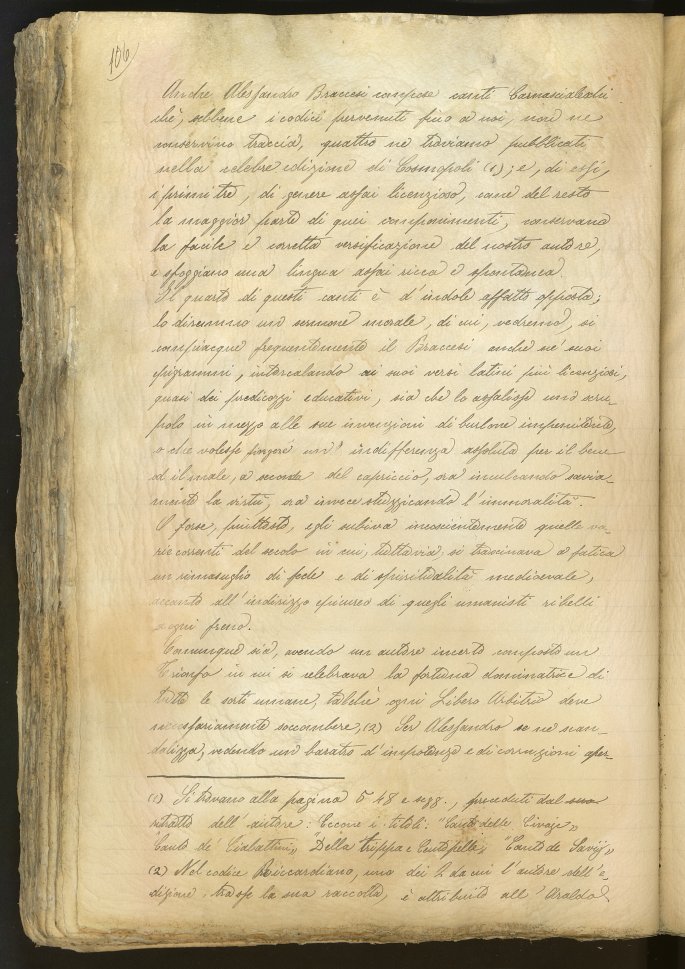 106
Anche Alessandro Braccesi compose canti Carnascialeschi
chè, sebbene i codici pervenuti fino a noi, non ne
conservino traccia, quattro ne troviamo pubblicati
nella celebre edizione di Cosmopoli (1); e, di essi,
i primi tre, di genere assai licenzioso, come del resto
la maggior parte di quei componimenti, conservano
la facile e corretta versificazione del nostro autore,
e sfoggiano una lingua assai ricca e spontanea.
Il quarto di questi canti è d'indole affatto opposta;
lo diremmo un sermone morale, di cui, vedremo, si
compiacque frequentemente il Braccesi anche ne' suoi
epigrammi, intercalando ai suoi versi latini più licenziosi,
quasi dei predicozzi educativi, sia che lo assalisse uno scru-
polo in mezzo alle sue invenzioni di burlone impenitente,
o che volesse fingere un' indifferenza assoluta per il bene
ed il male, a seconda del capriccio, ora inculcando savia-
mente la virtù, ora invece stuzzicando l'immoralità.
O forse, piuttosto, egli subiva incoscientemente quelle va-
rie correnti del secolo in cui, tuttavia, si trascinava a fatica
un rimasuglio di fede e di spiritualità medioevale,
accanto all'indirizzo epicureo di quegli umanisti ribelli
a ogni freno.
Comunque sia, avendo un autore incerto composto un
Trionfo in cui si celebrava la fortuna dominatrice di
tutte le sorti umane, talchè ogni Libero Arbitrio deve
necessariamente soccombere, (2) Ser Alessandro se ne scan-
dalizza, vedendo un baratro d'impotenze e di corruzioni aper-
(1) Si trovano alla pagina 548 e segg., preceduti dal suo
ritratto dell'autore: Eccone i titoli: "Canto delle Civaje„
"Canto de' Ciabattini„ "Della trippa e Centopelle„ "Canto de Savij„
(2) Nel codice Riccardiano, uno dei 2 da cui l'autore dell'e-
dizione trasse la sua raccolta, è attribuito all' Araldo